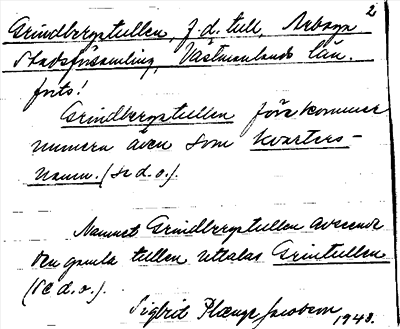 2
Grindbergstullen, f.d. tull, Arboga
Stadsförsamling, Västmanlands län.
forts!
Grindbergstullen förekommer
numera även som kvarters-
namn. (Se d.o.).
Namnet Grindbergstullen avseende
den gamla tullen uttalas Grintullen
(se d.o.).
Sigbrit Plænge Jacobson, 1948.